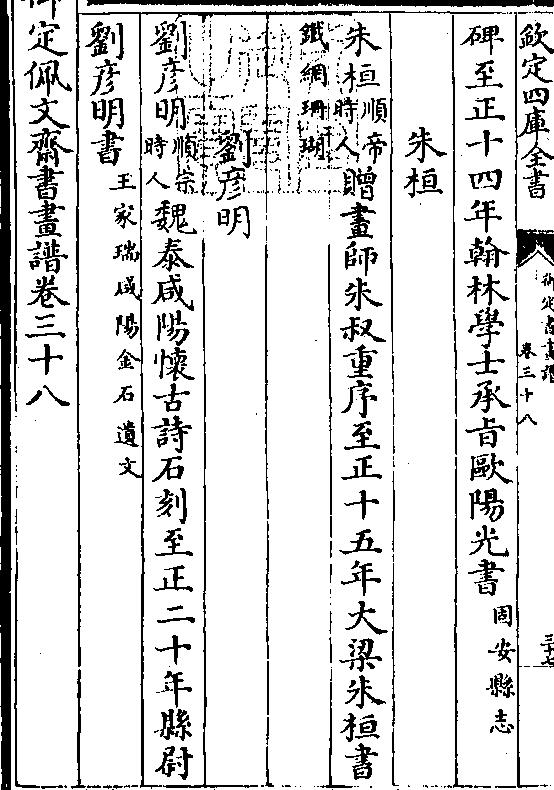 欽定四庫全書
御定書畫譜
卷三十八
三十七
碑至正十四年翰林學士承旨歐陽光書固安縣志
朱桓
朱桓順帝時人贈畫師朱叔重序至正十五年大梁朱桓書
鐵網珊瑚
劉彦明
劉彦明順宗時人魏泰咸陽懷古詩石刻至正二十年縣尉
劉彦明書王家瑞咸陽金石遺文
御定佩文齋書畫譜卷三十八